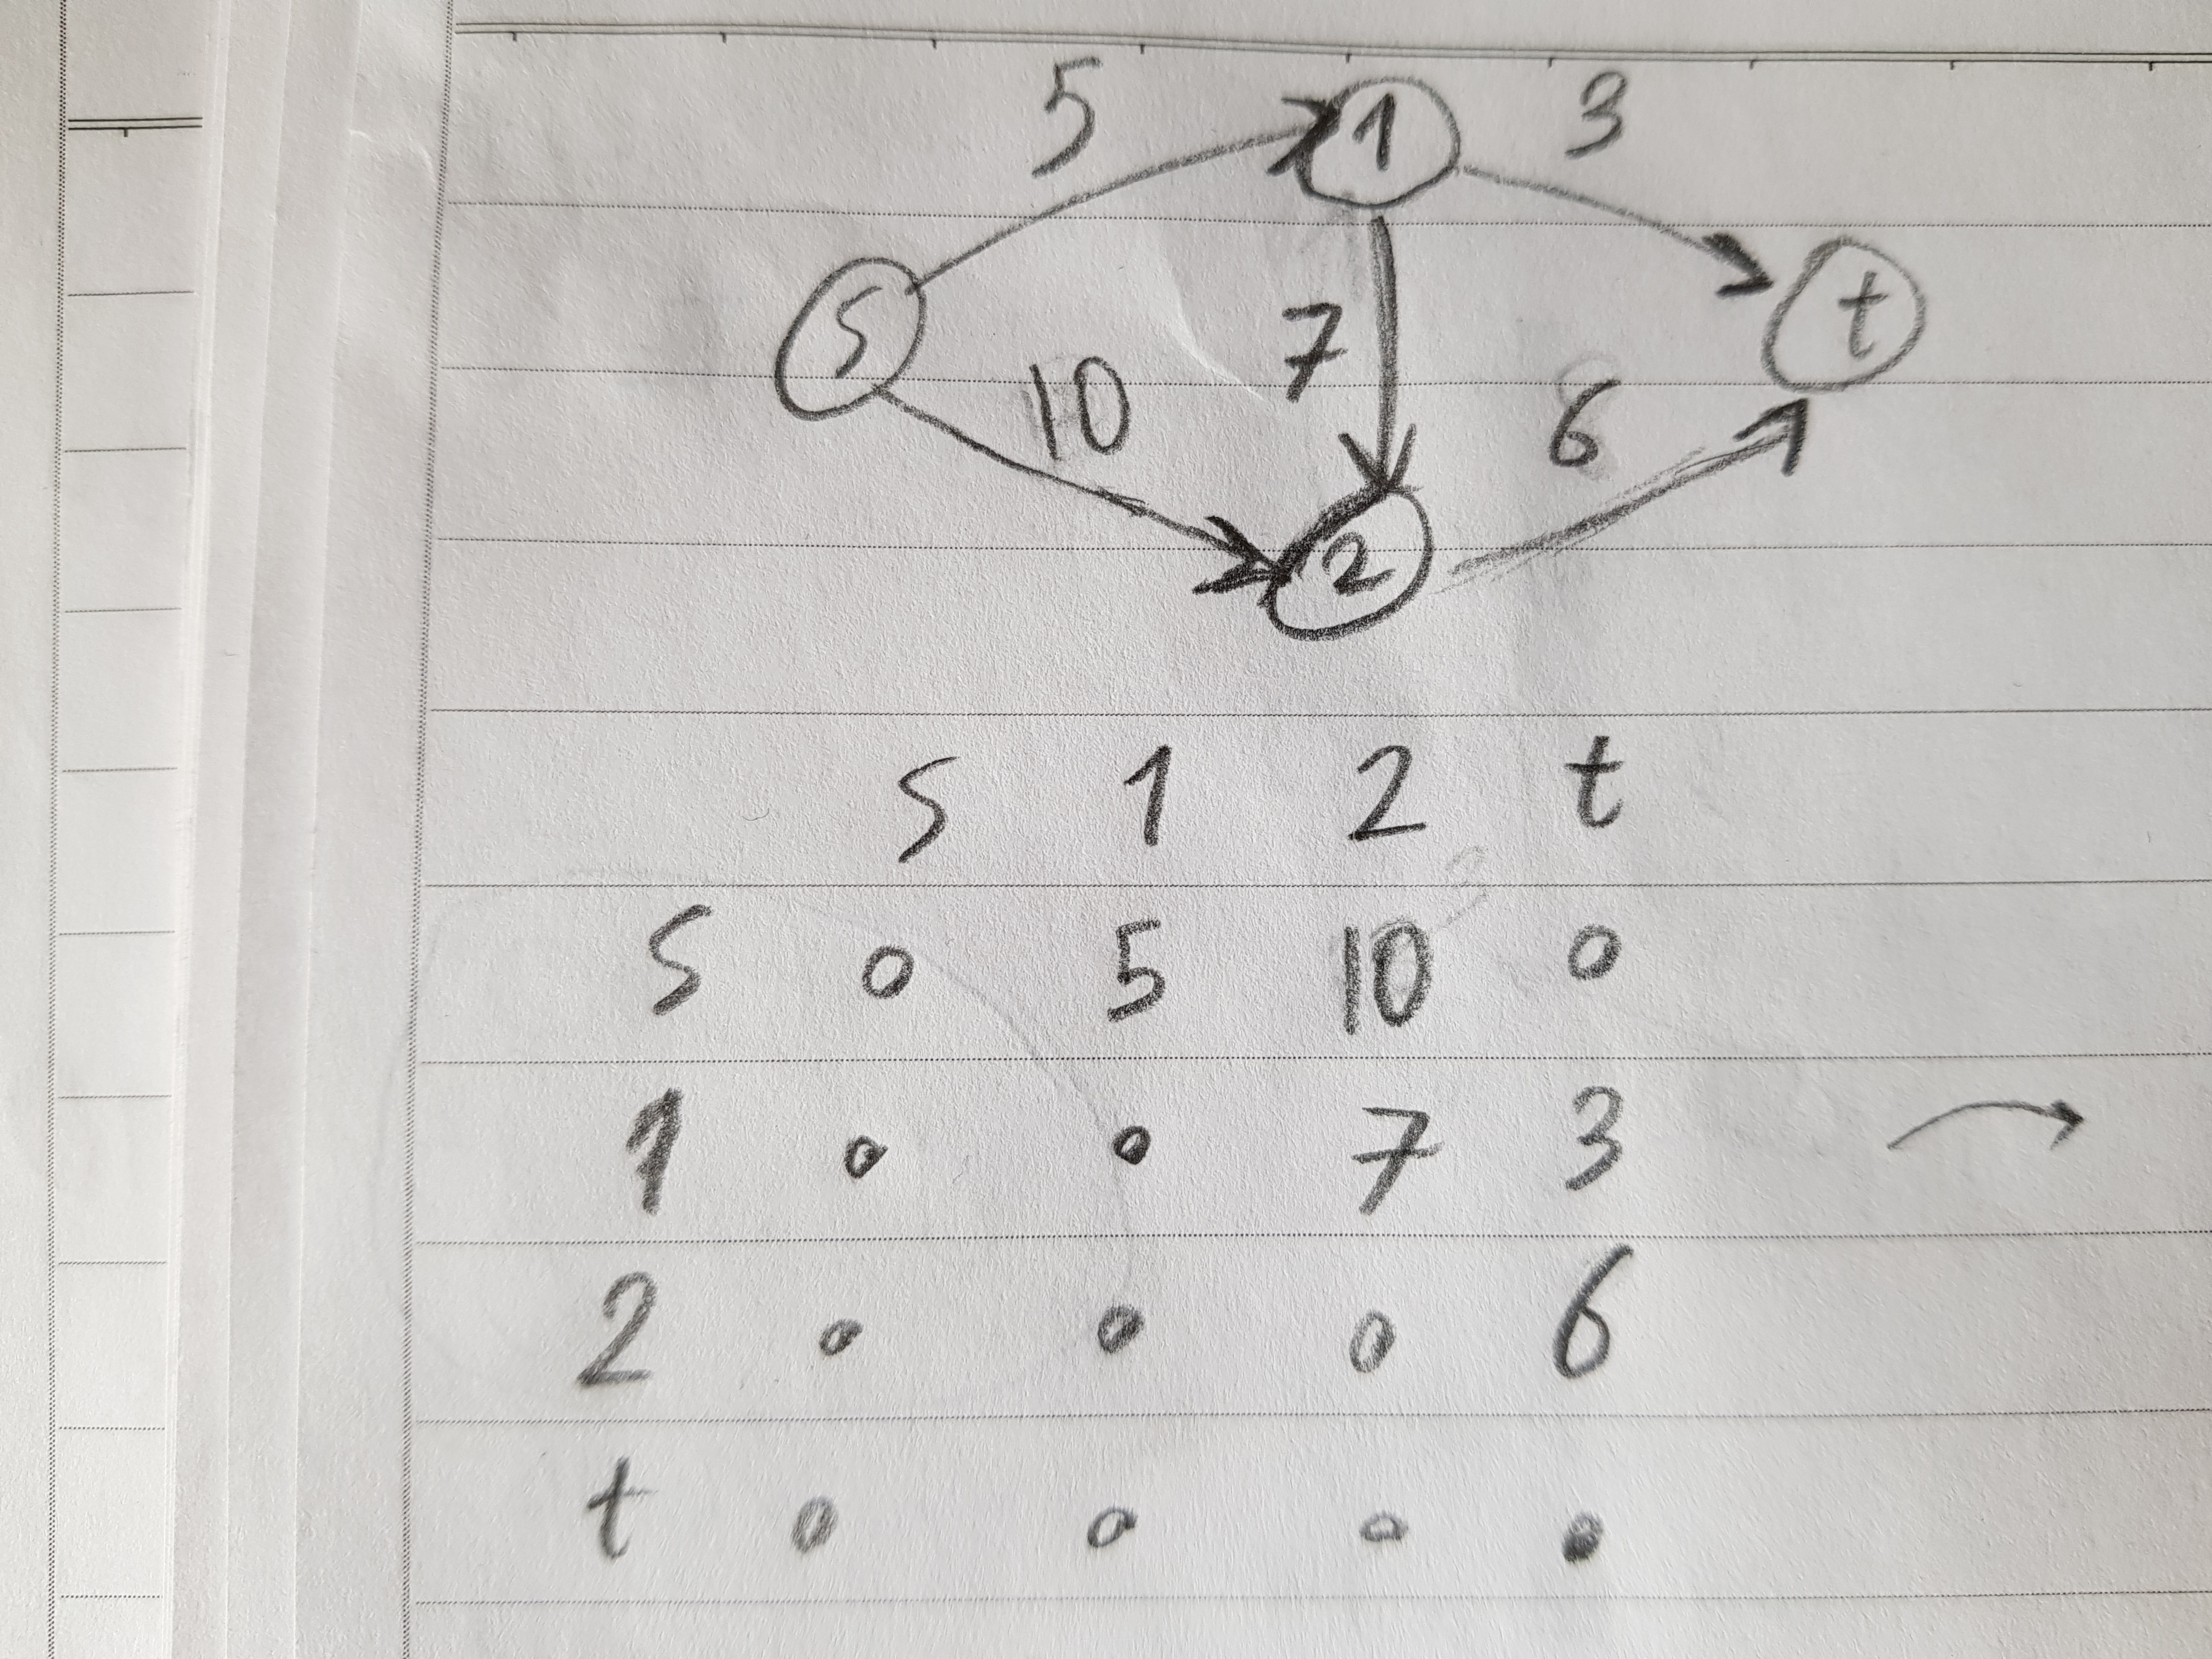 5 1 3
s t
10 7 6
2
s 1 2 t
s 0 5 10 0
1 0 0 7 3
2 0 0 0 6
t 0 0 0 0